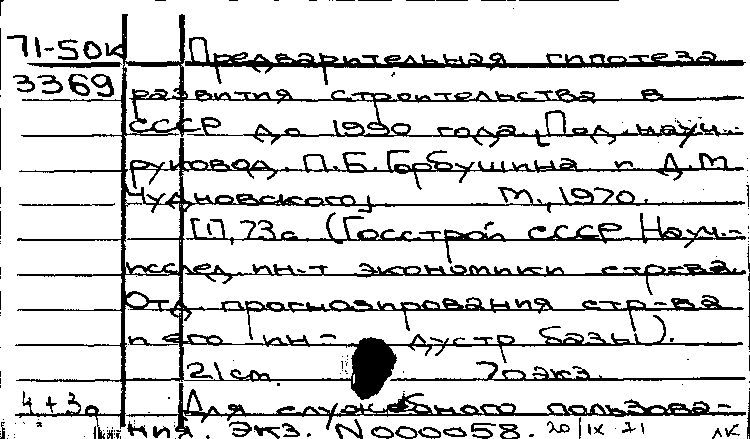 71-50к Предварительная гипотеза
3369 развития строительства в
СССР до 1990 года. [Под науч.
руковод. П.Б. Горбушина и Д.М.
Чудновского] М., 1970.
[1], 73с. (Госстрой СССР. Науч.-
исслед. ин-т экономики стр-ва.
Отд. прогнозирования стр-ва
и его ин- дустр. базы).
21 см. 70 экз.
4+3д Для служебного пользова-
ния. Экз. N000058. 20/IX 71 ЛК